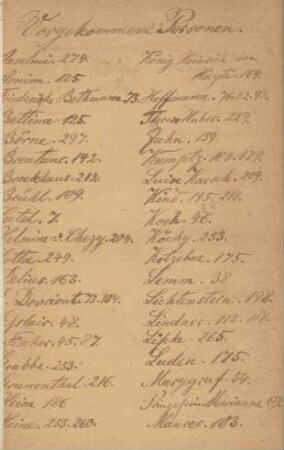 Vorgekommene Personen.
Arnim. 125.
Friederike Bethmann. 73.
Bettina. 125.
Börne. 297.
Brentano. 142.
Brockhaus. 212.
Brühl. 109.
7.
Helmina v. Chezy. 204.
Cotta. 249.
163.
Devrient. 72. 104.
48.
45. 87.
Grabbe. 253.
216.
Heim 186
Heine. 253. 260.
König Heinrich von
Hayti. 164.
Hoffmann. 76. 82. 92.
Therese Huber. 229.
Jahn. 159.
103. 179.
Luise Karsch. 209.
Kind. 195. 218.
Koch. 46.
Köchy. 253.
Kotzebue. 175.
Lemm. 38
Lichtenstein. 198.
Lindner. 112.
265.
Luden. 175.
Marggraf. 54.
Prinzessin Marianne
Maurer. 103.